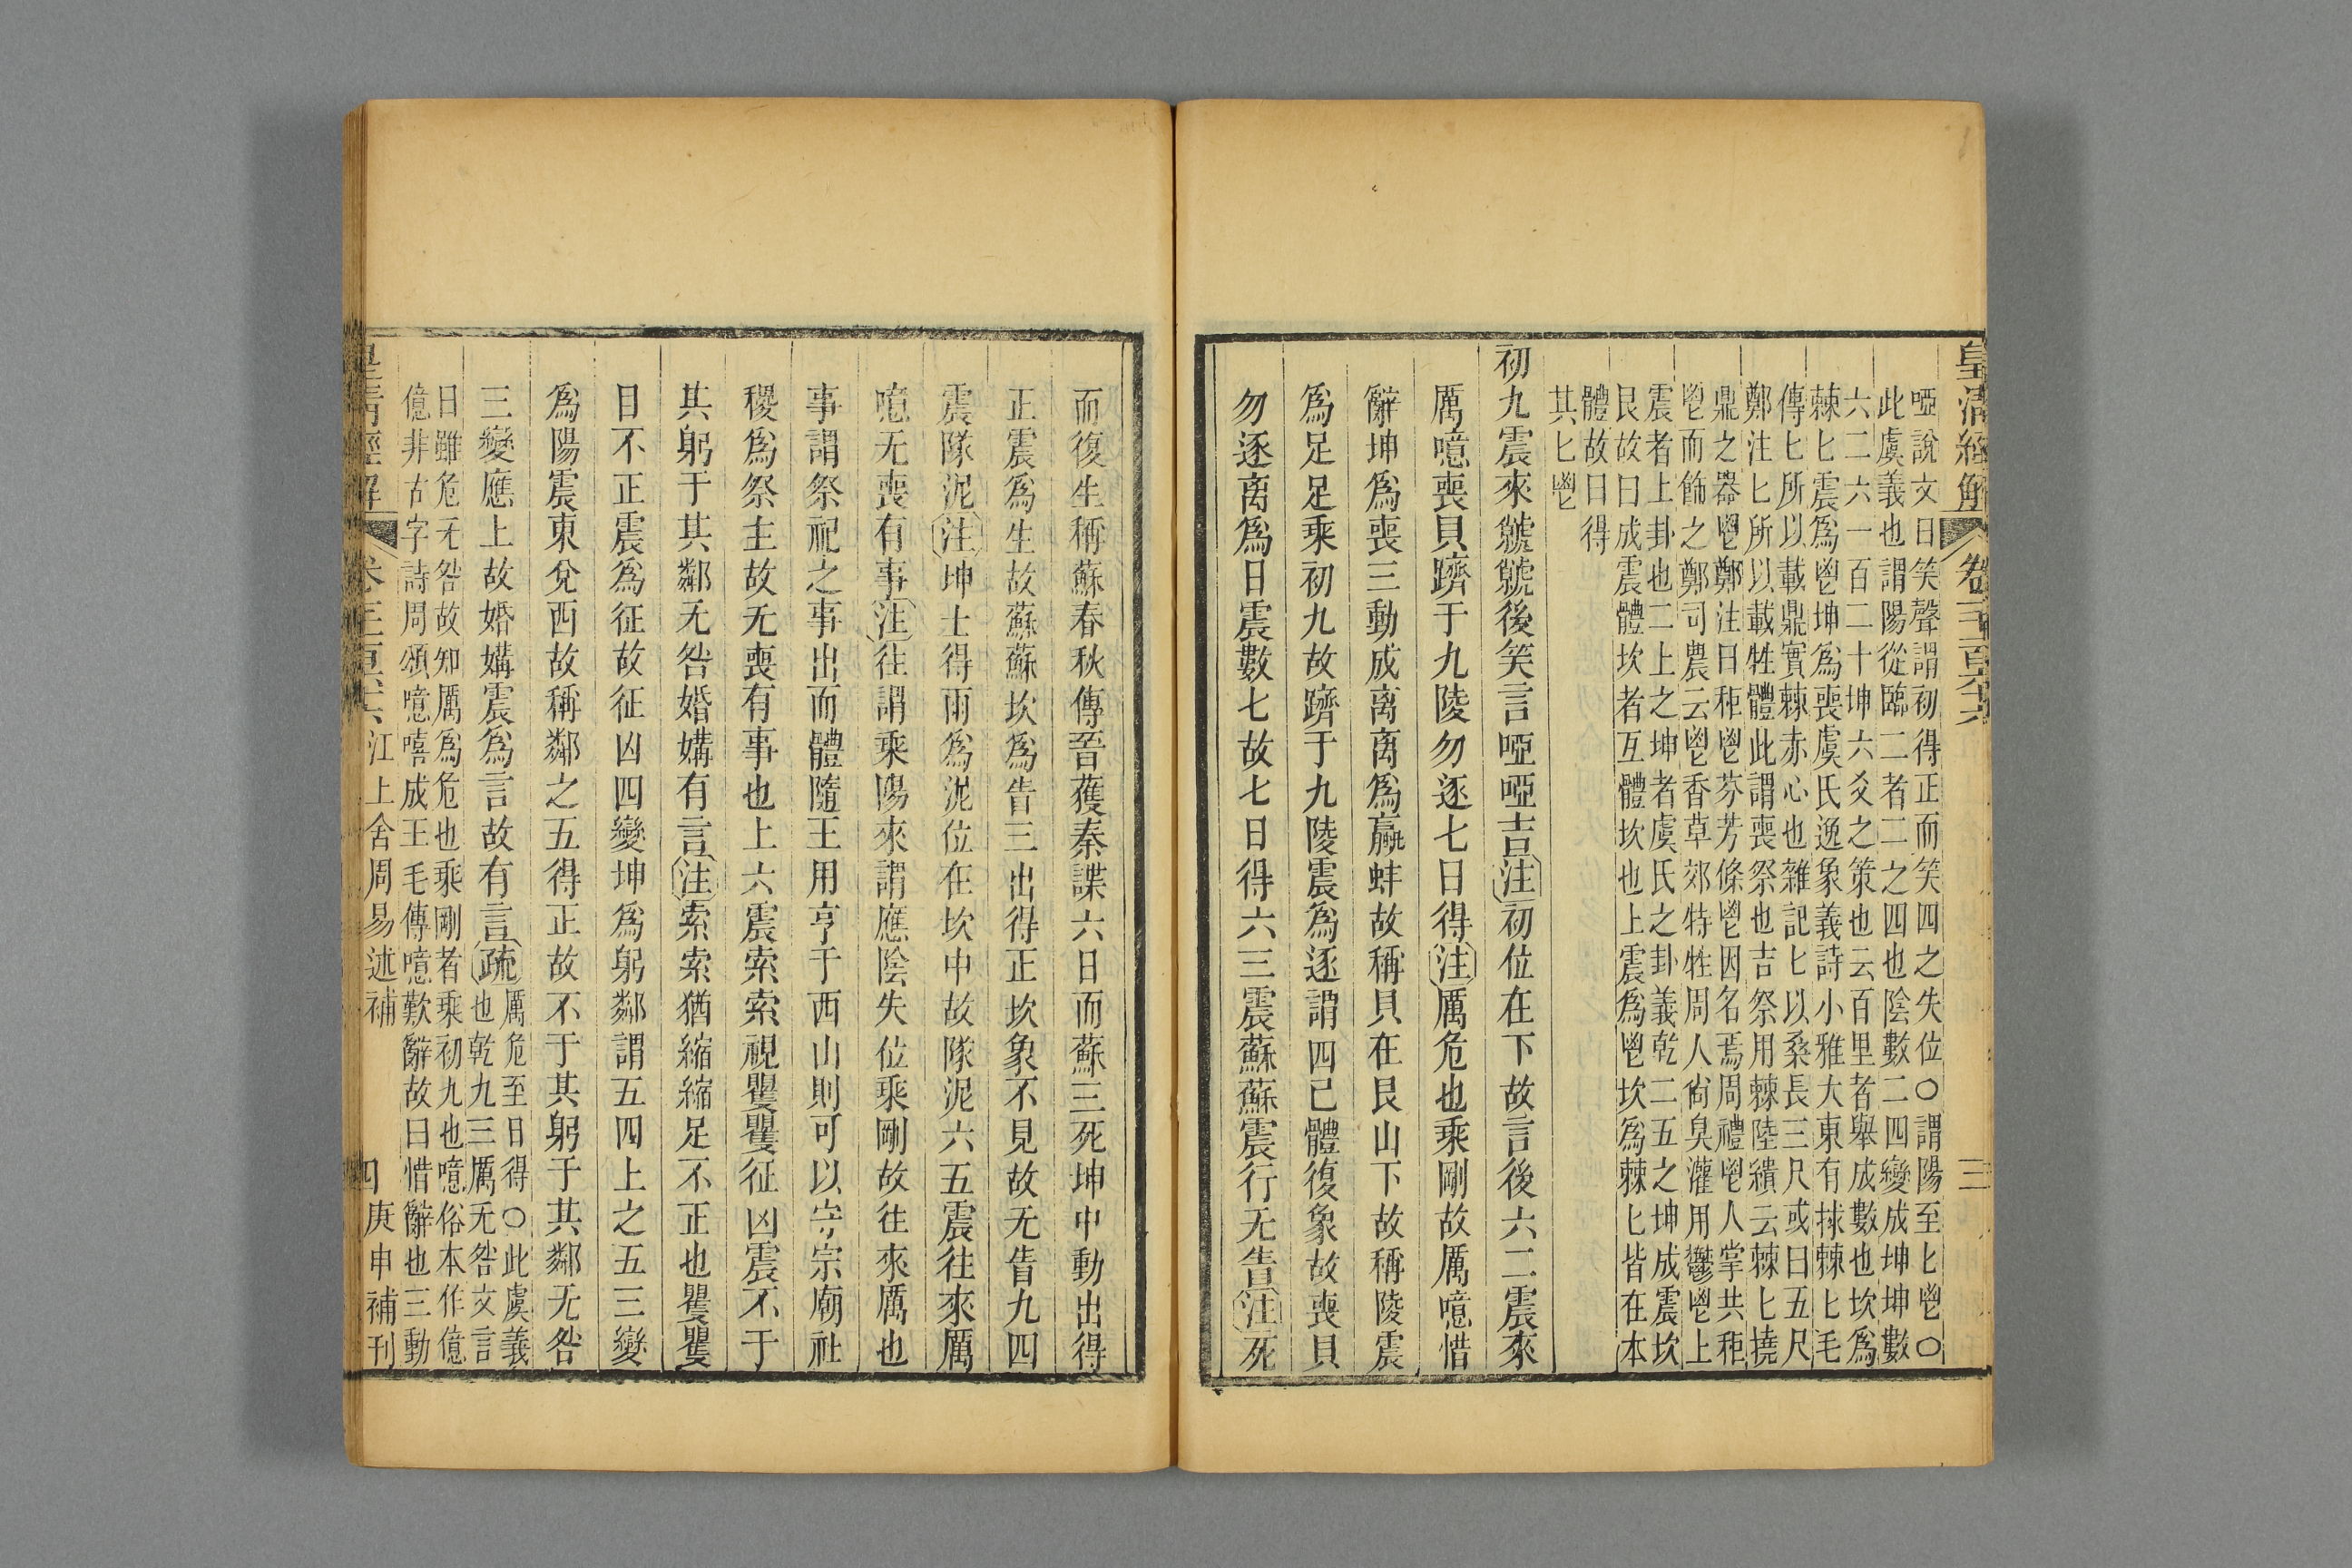 皇清經解 卷三百六十六 三
啞說文曰笑聲謂初得正而笑四之失位○謂陽至匕鬯○
此虞義也謂陽從臨二者二之四也陰數二四變成坤坤數
六二六一百二十坤六爻之策也云百里者舉成數也坎爲
棘匕震爲鬯坤爲喪虞氏逸象義詩小雅大東有捄棘匕毛
傳匕所以載鼎實棘赤心也雜記匕以桑長三尺或曰五尺
鄭注匕所以載牲體此謂喪祭也吉祭用棘陸績云棘匕撓
鼎之器鬯鄭注曰秬鬯芬芳條鬯因名焉周禮鬯人掌共秬
鬯而飾之鄭司農云鬯香草郊特牲周人尙臭灌用鬱鬯上
震者上卦也二上之坤者虞氏之卦義乾二五之坤成震坎
艮故曰成震體坎者互體坎也上震爲鬯坎爲棘匕皆在本
體故曰得
其匕鬯
初九震來虩虩後笑言啞啞吉注初位在下故言後六二震來
厲噫喪貝躋于九陵勿逐七日得注厲危也乘剛故厲噫惜
辭坤爲喪三動成离离爲蠃蚌故稱貝在艮山下故稱陵震
爲足足乘初九故躋于九陵震爲逐謂四已體復象故喪貝
勿逐离爲日震數七故七日得六三震蘇蘇震行无眚注死
而復生稱蘇春秋傳晉獲秦諜六日而蘇三死坤中動出得
正震爲生故蘇蘇坎爲眚三出得正坎象不見故无眚九四
震隊泥注坤土得雨爲泥位在坎中故隊泥六五震往來厲
噫无喪有事注往謂乘陽來謂應陰失位乘剛故往來厲也
事謂祭祀之事出而體隨王用亨于西山則可以守宗廟社
稷爲祭主故无喪有事也上六震索索視矍矍征凶震不于
其躬于其鄰无咎婚媾有言注索索猶縮縮足不正也矍矍
目不正震爲征故征凶四變坤爲躬鄰謂五四上之五三變
爲陽震東兌西故稱鄰之五得正故不于其躬于其鄰无咎
三變應上故婚媾震爲言故有言疏厲危至日得○此虞義
也乾九三厲无咎文言
曰雖危无咎故知厲爲危也乘剛者乘初九也噫俗本作億
億非古字詩周頌噫嘻成王毛傳噫歎辭故曰惜辭也三動
皇清經解 卷三百六十六 江上舍周易述補 四 庚申補刊